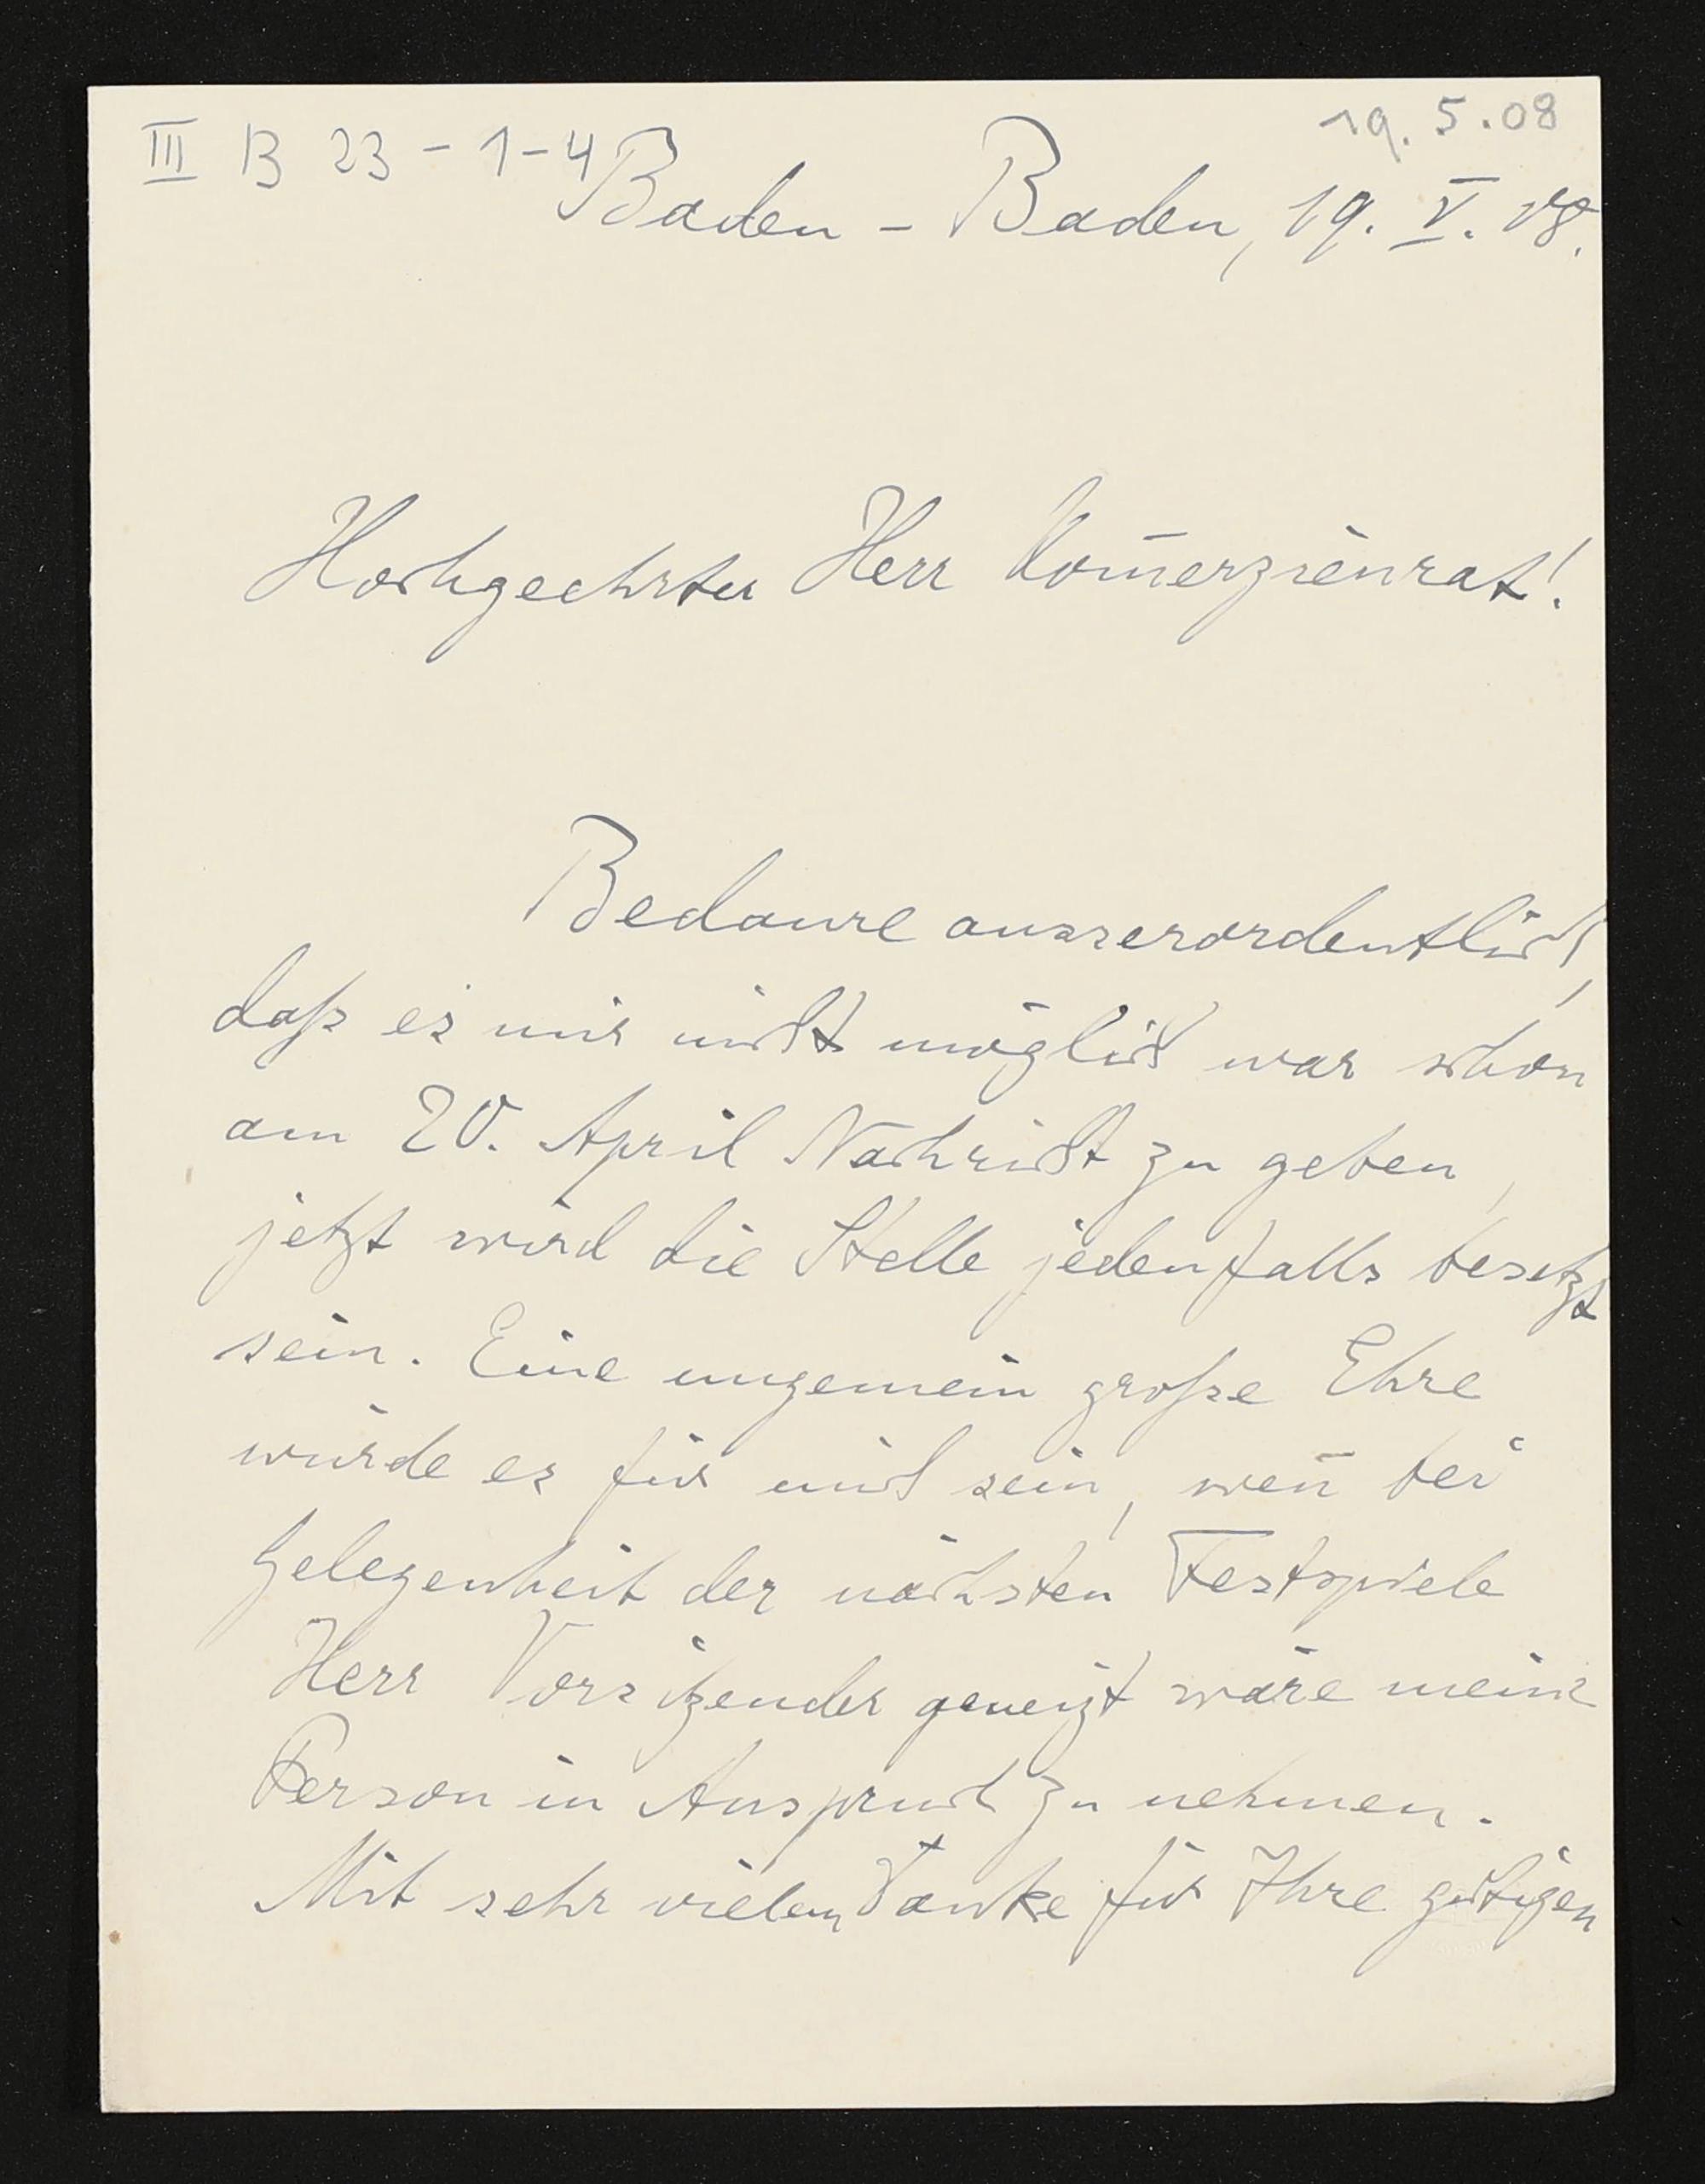 19. 5. 08
III B 23 - 1-4
Baden - Baden, 19. V. 08.
Hochgeehrter Herr Kom̄erzienrat!
Bedaure ausserordentlich,
daß es mir nicht möglich war schon
am 20. April Nachricht zu geben,
jetzt wird die Stelle jedenfalls besetzt
sein. Eine ungemein große Ehre
würde es für mich sein, wen̄ bei
Gelegenheit der nächsten Festspiele
Herr Vorsitzender geneigt wäre meine
Person in Anspruch zu nehmen.
Mit sehr vielem Danke für Ihre gütigen